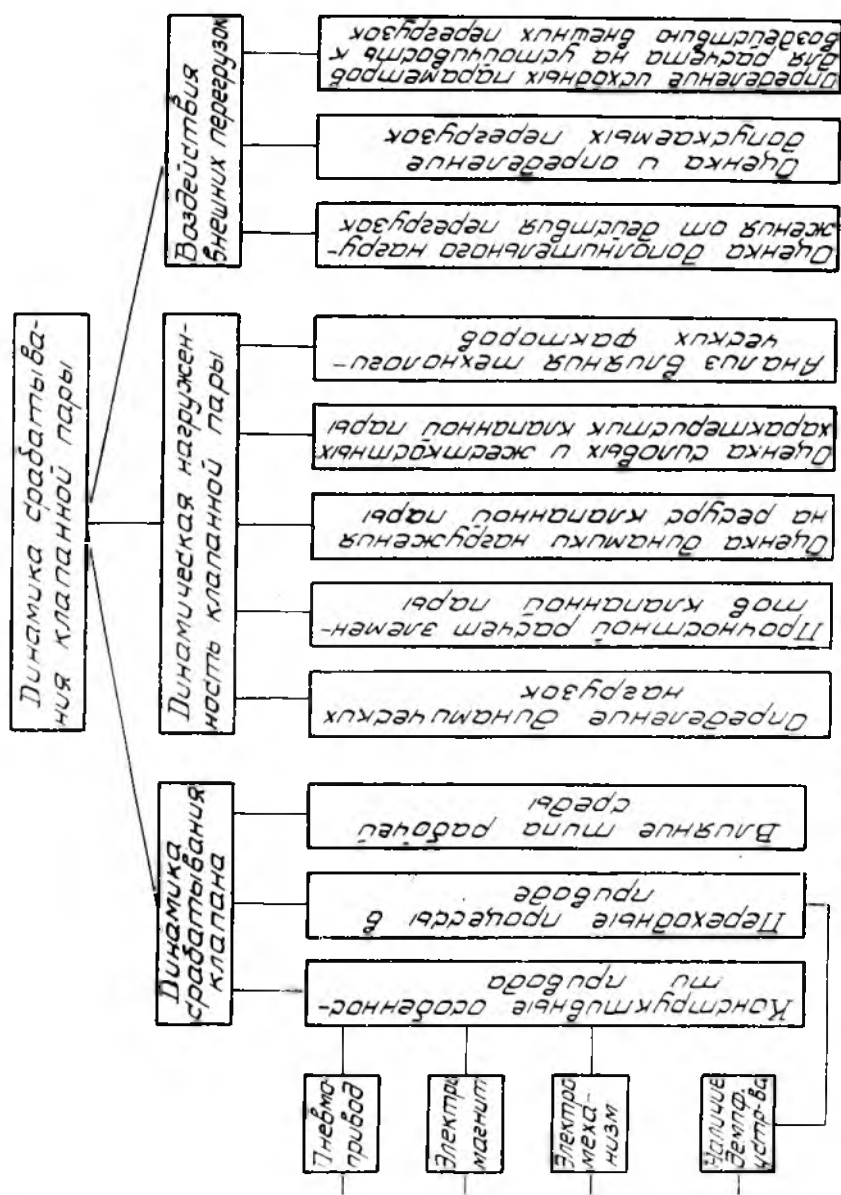 Динамика срабатыва-
ния клапанной пары
Динамика
срабатывания
клапана
Динамическая нагружен-
ность клапанной пары
Воздействия
внешних перегрузок
Конструктивные особеннос-
ти привода
Переходные процессы в
приводе
Влияние типа рабочей
среды
Определение динамических
нагрузок
Прочностной расчет элемен-
тов клапанной пары
Оценка динамики нагружения
на ресурс клапанной пары
Оценка силовых и жесткостных
характеристик клапанной пары
Анализ влияния технологи-
ческих факторов
Оценка дополнительного нагру-
жения от действия перегрузок
Оценка и определение
допускаемых перегрузок
Определение исходных параметров
для расчета на устойчивость к
воздействию внешних перегрузок
Пневмо-
привод
Электро
магнит
Электро
меха-
низм
Наличие
демпф.
устр-ва